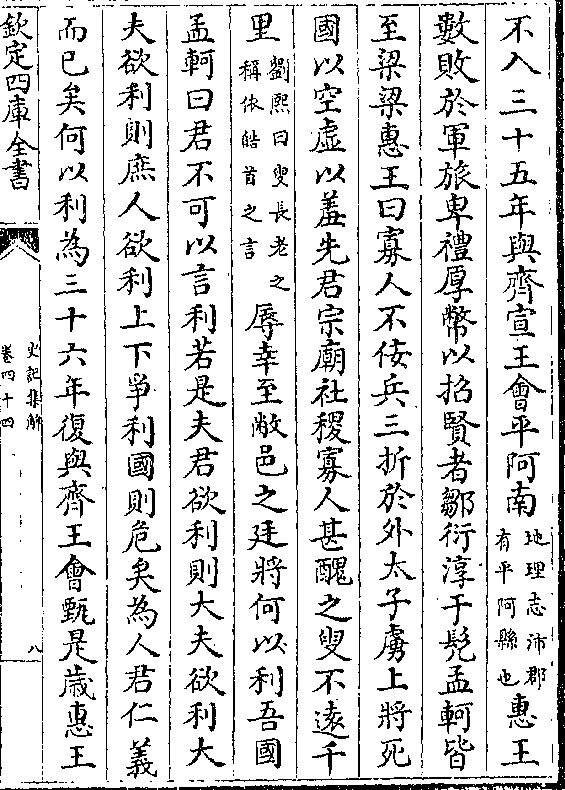 不入三十五年與齊宣王會平阿南地理志沛郡有平阿縣也惠王
數敗於軍旅卑禮厚幣以招賢者鄒衍淳于髡孟軻皆
至梁梁惠王曰寡人不佞兵三折於外太子虜上將死
國以空虛以羞先君宗廟社稷寡人甚醜之叟不逺千
里劉熙曰叟長老之稱依皓首之言辱幸至敝邑之廷將何以利吾國
孟軻曰君不可以言利若是夫君欲利則大夫欲利大
夫欲利則庶人欲利上下爭利國則危矣為人君仁義
而已矣何以利為三十六年復與齊王會甄是歲惠王
欽定四庫全書
史記集解
卷四十四
八